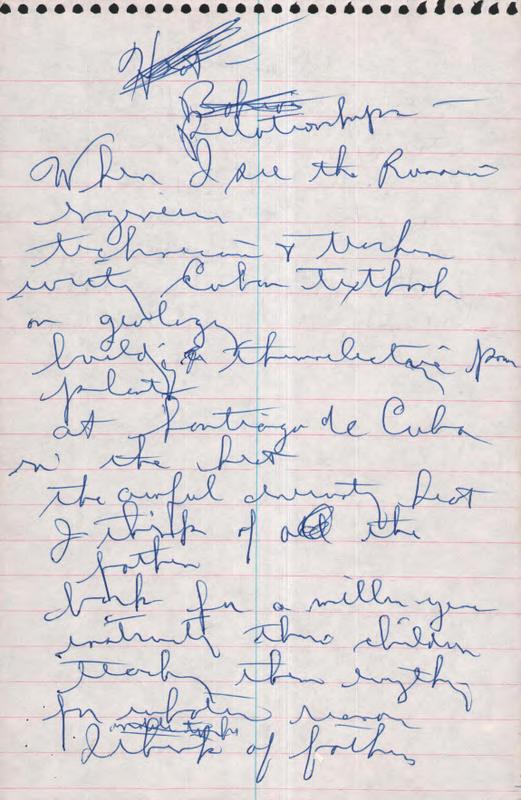 Relationships —
When I see the Russian
engineers
technicians & teachers
writing Cuban textbooks
on geology
building thermoelectric power
plants
at Santiago de Cuba
in the heat
the awful heat
I think of all the
fathers
back for a million years
instructing their children
teaching them everything
for whatever reason
I think of fathers